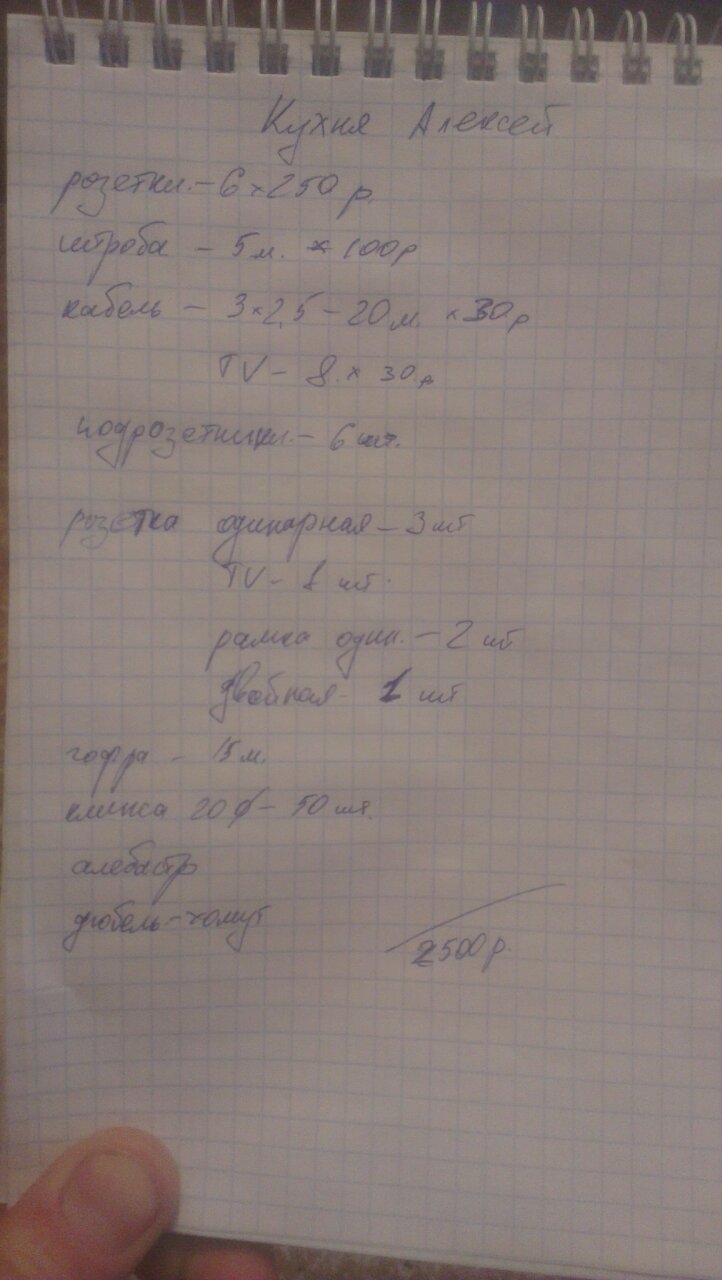 Кухня Алексей
розетки. – 6 × 250 р.
штроба – 5 м. × 100р
кабель – 3×2,5 – 20 м. × 30р
TV – 8 × 30р
подрозетники. – 6 шт.
розетка одинарная – 3 шт
TV – 1 шт.
рамка один. – 2 шт
двойная – 1 шт
гофра – 15 м.
клипса 20 ф – 50 шт.
алебастр
дюбель-хомут
2500р.